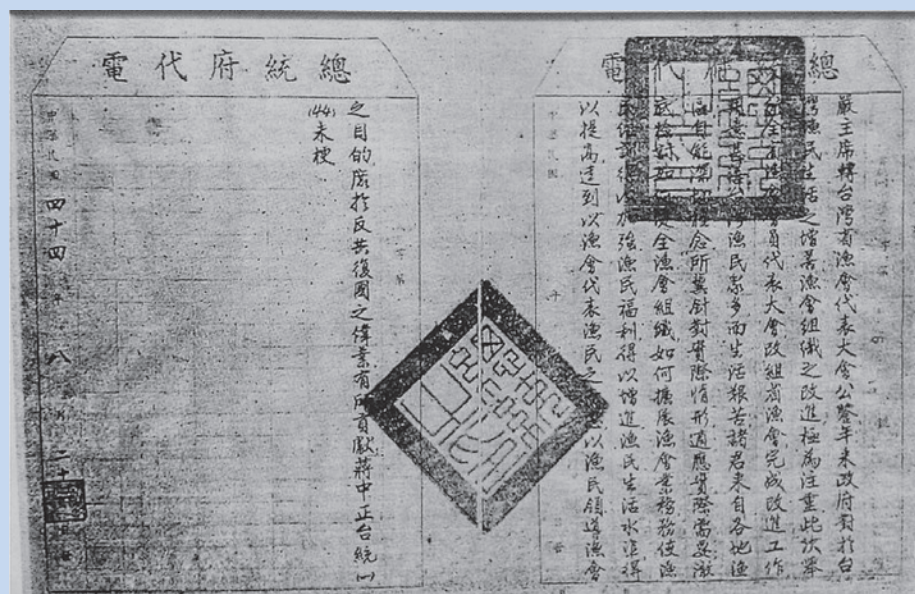 總統府代電
嚴主席轉台灣省漁會代表大會公鑒年來政府對於台
灣漁民生活之增善漁會組織之改進極為注重此次舉
全省會員代表大會改組省漁會完成改進工作
嘉台灣漁民眾多而生活艱苦諸君來自各地漁
區自能深切體念所冀針對實際情形適應實際需要澈
底檢討如何健全漁會組織如何擴展漁會業務務使漁
得以加強漁民福利得以增進漁民生活水準得
以提高達到以漁會代表漁民之意以漁民領導漁會
中華民國
總統府代電
之目的庶於反共復國之偉業有所貢獻蔣中正台統(一)
(44)未梗
中華民國四十四年八月二十日